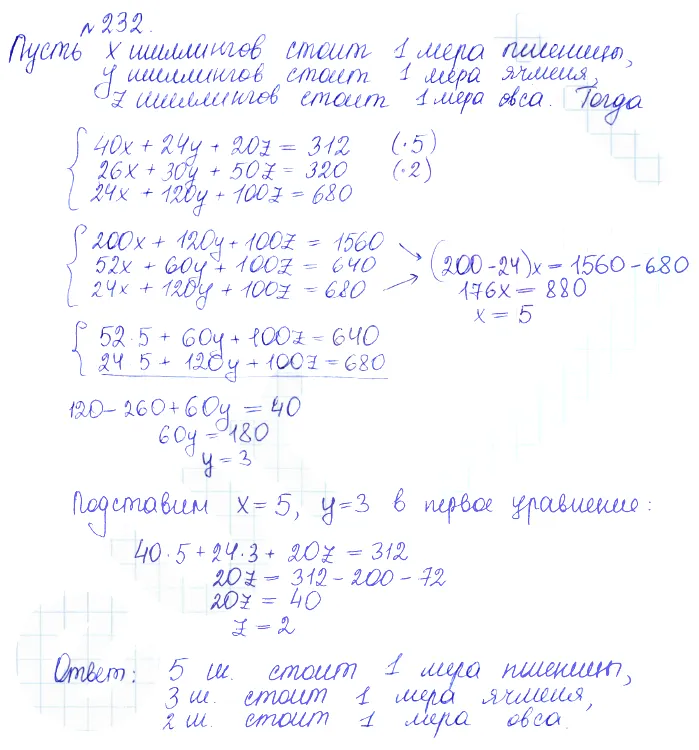 №232.
Пусть x шиллингов стоит 1 мера пшеницы,
y шиллингов стоит 1 мера ячменя,
z шиллингов стоит 1 мера овса. Тогда
40x + 24y + 20z = 312 (·5)
26x + 30y + 50z = 320 (·2)
24x + 120y + 100z = 680
200x + 120y + 100z = 1560
52x + 60y + 100z = 640
24x + 120y + 100z = 680
(200-24)x = 1560-680
176x = 880
x = 5
52·5 + 60y + 100z = 640
24 5 + 120y + 100z = 680
120 - 260 + 60y = 40
60y = 180
y = 3
Подставим x=5, y=3 в первое уравнение:
40·5 + 24·3 + 20z = 312
20z = 312 - 200 - 72
20z = 40
z = 2
Ответ: 5 ш. стоит 1 мера пшеницы,
3 ш. стоит 1 мера ячменя,
2 ш. стоит 1 мера овса.